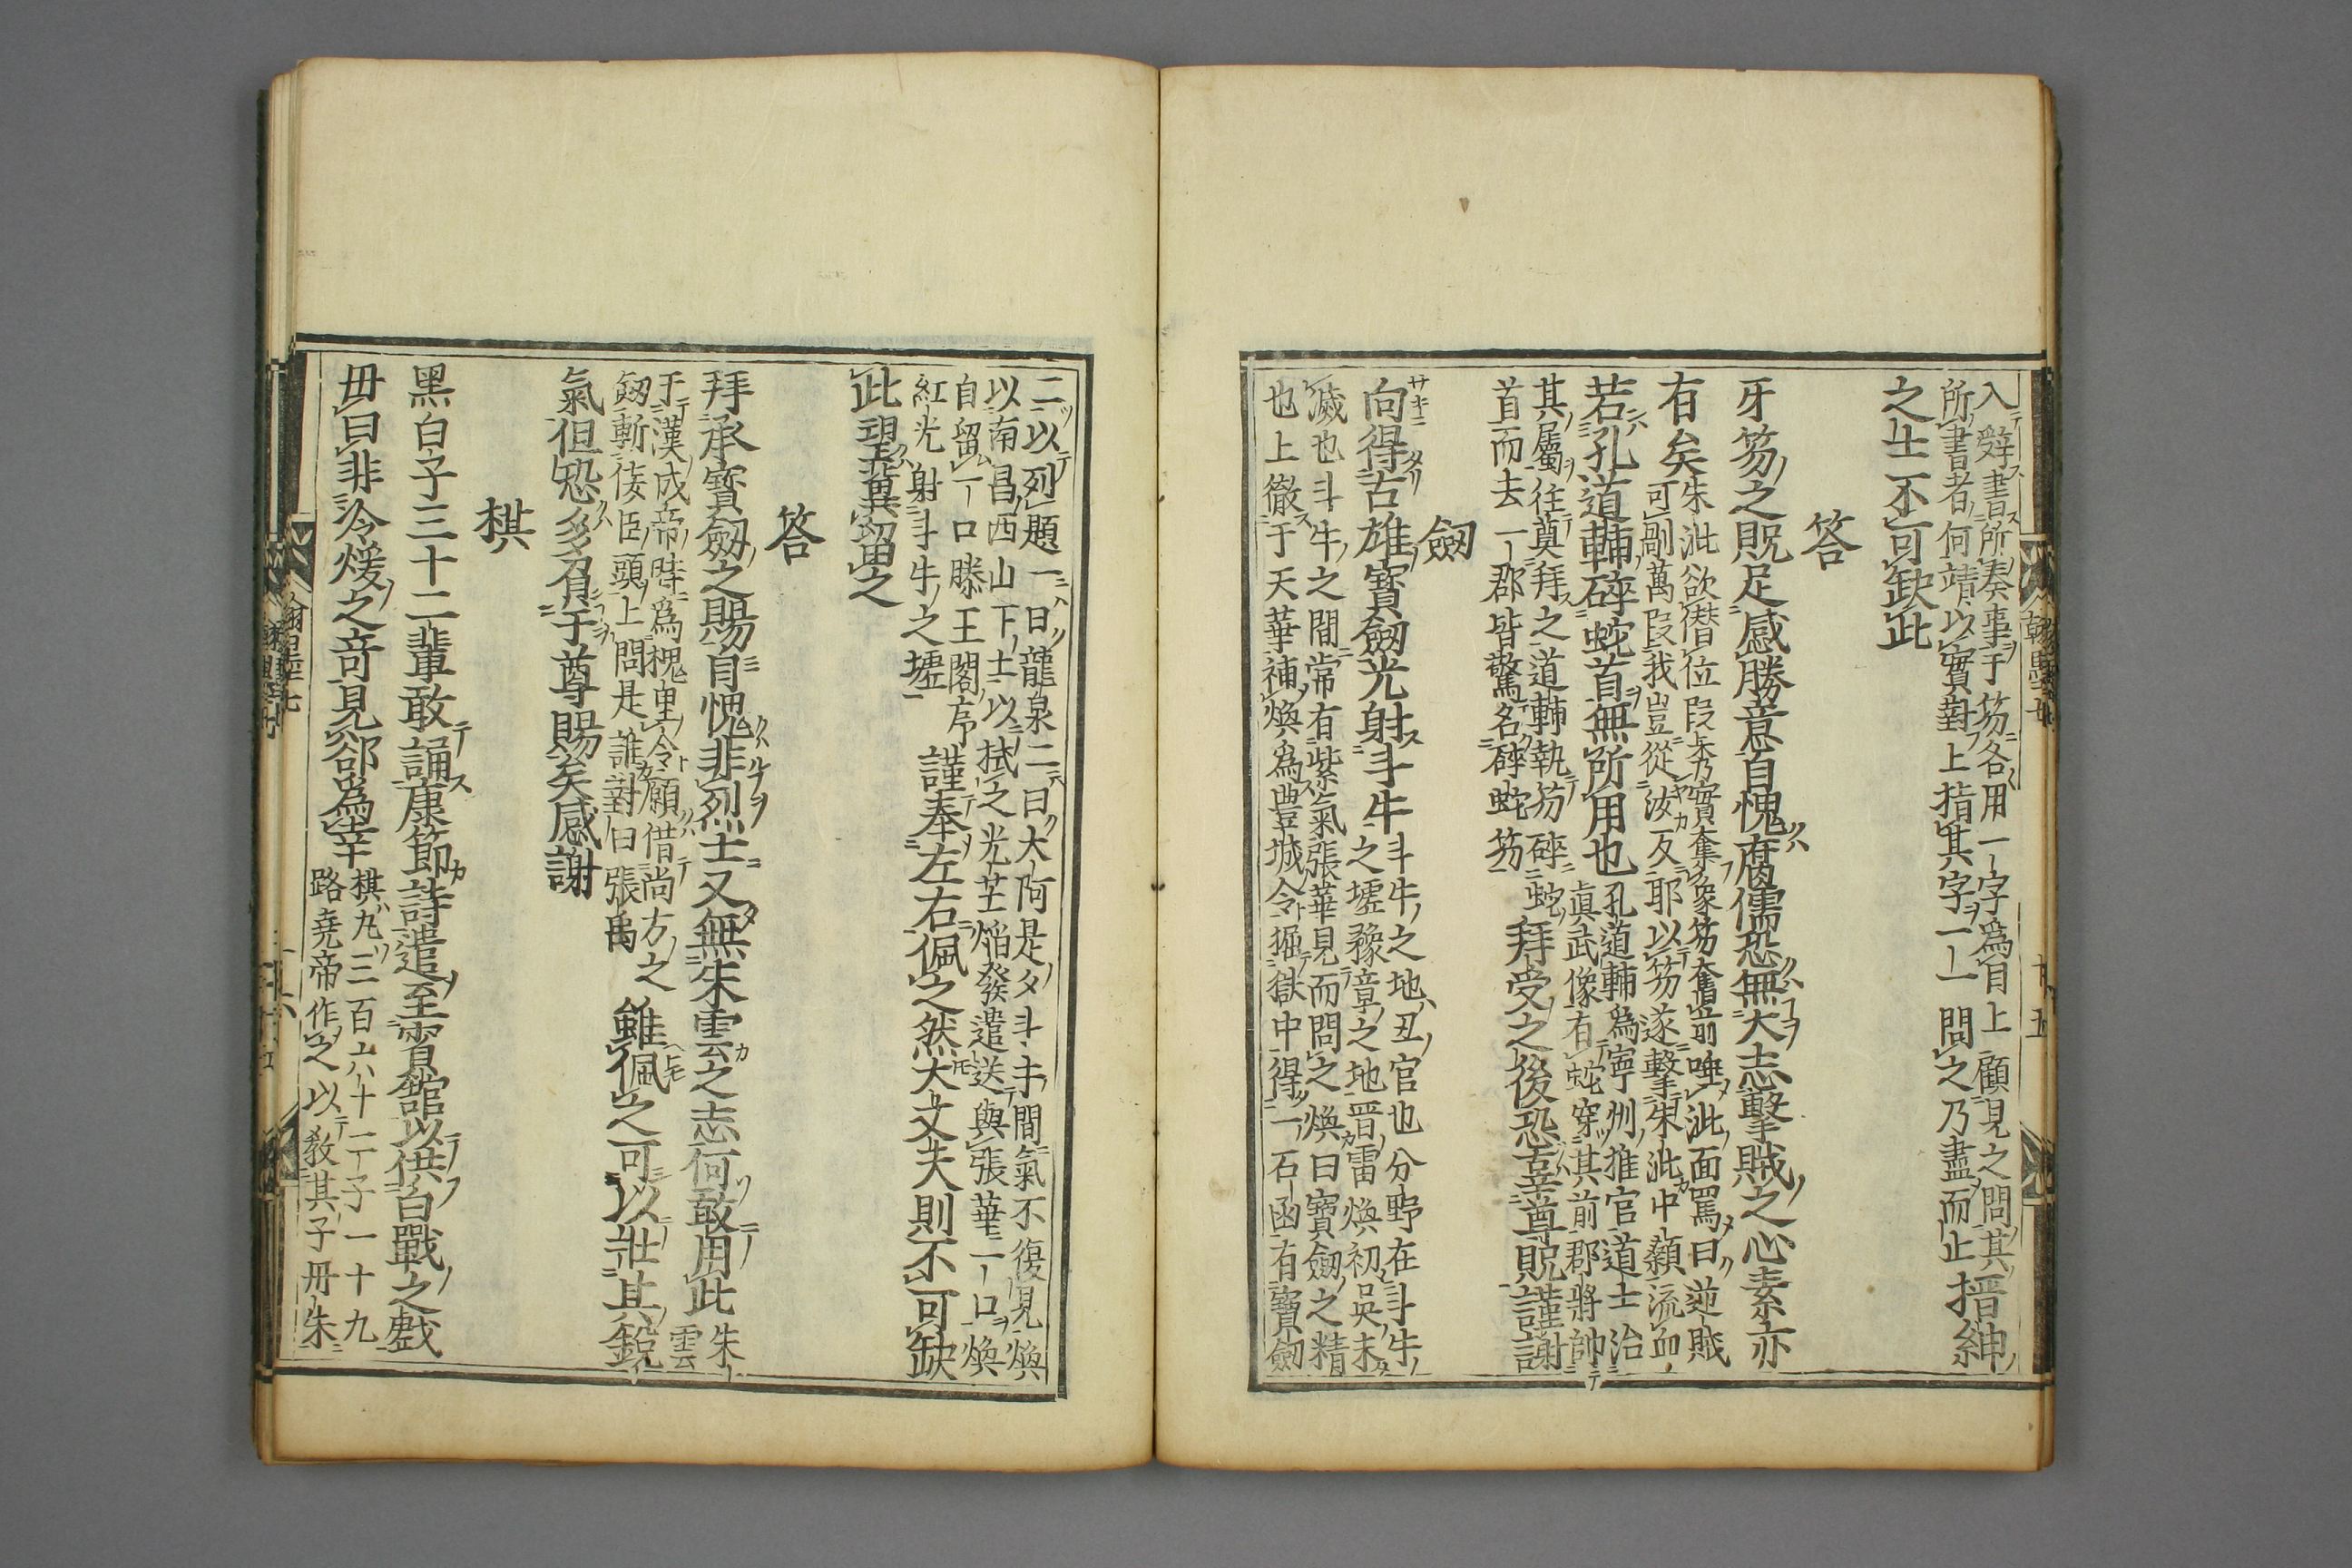 入辤書所奏事于笏各用一字爲目上顧見之問其
所書者何靖以實對上指其字一一問之乃盡而止
搢紳
之士不可缺此
答
牙笏之貺足感勝意自愧腐儒恐無大志擊賊之心素亦
有矣
朱泚欲僭位段秀實奪象笏奮前唾泚面罵曰逆賊
可剮萬段我豈從汝反耶以笏遂擊朱泚中顙流血
若孔道輔碎蛇首無所用也
孔道輔爲寧州推官道士治
眞武像有蛇穿其前郡將帥
其屬往奠拜之道輔執笏碎蛇
首而去一郡皆驚名碎蛇笏
拜受之後恐辜尊貺謹謝
劔
向得古雄寶劔光射斗牛
斗牛之地丑官也分野在斗牛
之墟豫章之地晋雷煥初吳未
滅也斗牛之間常有紫氣張華見而問之煥曰寶劔之精
也上徹于天華補煥爲豊城令掘獄中得一石函有寶劔
二以列題一曰龍泉二曰大阿是夕斗牛間氣不復見煥
以南昌西山下土以拭之光芒焰發遣送與張華一口煥
自留一口滕王閣序
紅光射斗牛之墟
謹奉左右佩之然大丈夫則不可缺
此望冀留之
答
拜承寶劔之賜自愧非烈士又無朱雲之志何敢用此
朱雲
于漢成帝時爲槐里令願借尚方之
劔斬佞臣頭上問是誰對曰張禹
雖佩之可以壯其銳
氣但恐多負于尊賜矣感謝
棋
黑白子三十二輩敢誦康節詩遣至賓舘以供百戰之戱
毋曰非冷煖之竒見郤爲幸
棋九三百六十一子一十九
路堯帝作之以教其子丹朱